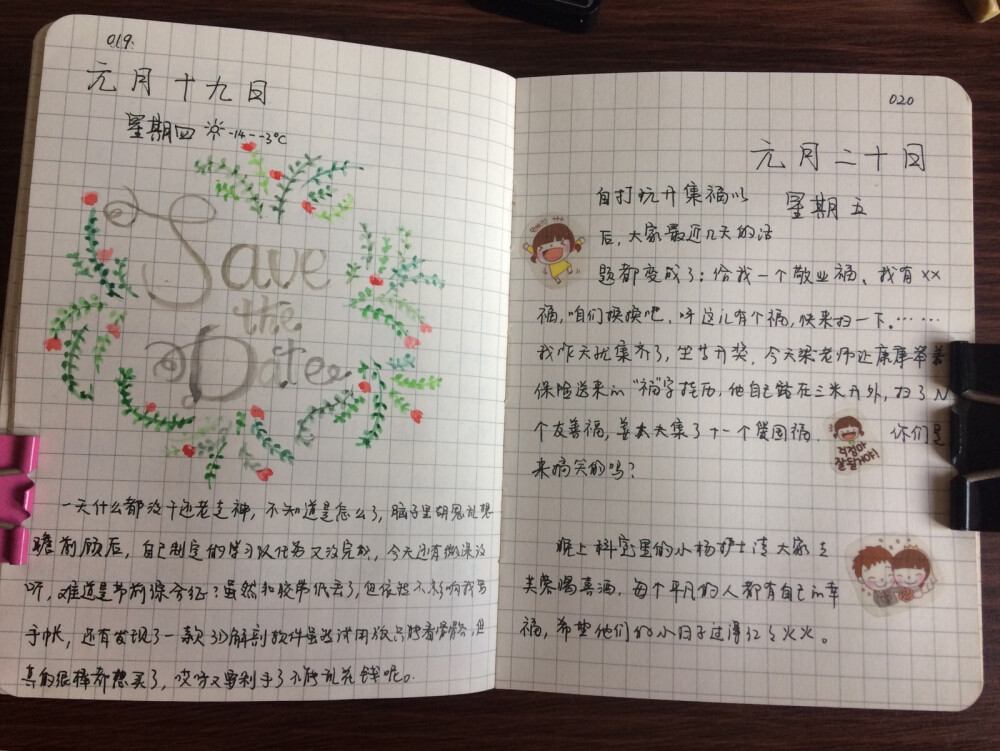 019.
元月十九日
星期四 -14--3℃
Save
the
Date
一天什么都没干还老走神，不知道是怎么了，脑子里胡思乱想
瞻前顾后，自己制定的学习任务又没完成，今天还有微课没
听，难道是节前综合征？虽然和胶带低去了，但依然不影响我写
手帐，还有发现了一款3D解剖软件虽然试用版只能看骨骼，但
真的很棒都想买了，哎呀又要剁手了不能乱花钱呢。
020
元月二十日
星期五
自打玩开集福以
后，大家最近几天的话
题都变成了：给我一个敬业福、我有××
福，咱们换换吧，呀这儿有个福，快来扫一下。……
我昨天就集齐了，坐等开奖，今天梁老师让康康举着
保险送来的“福”字挂历，他自己蹲在三米开外，扫了N
个友善福，姜太夫集了十一个爱国福. 你们是
来搞笑的吗？
걱정마
잘될거야!
晚上科室里的小杨护士请大家去
芙蓉喝喜酒，每个平凡的人都有自己的幸
福，希望他们的小日子过得红红火火。